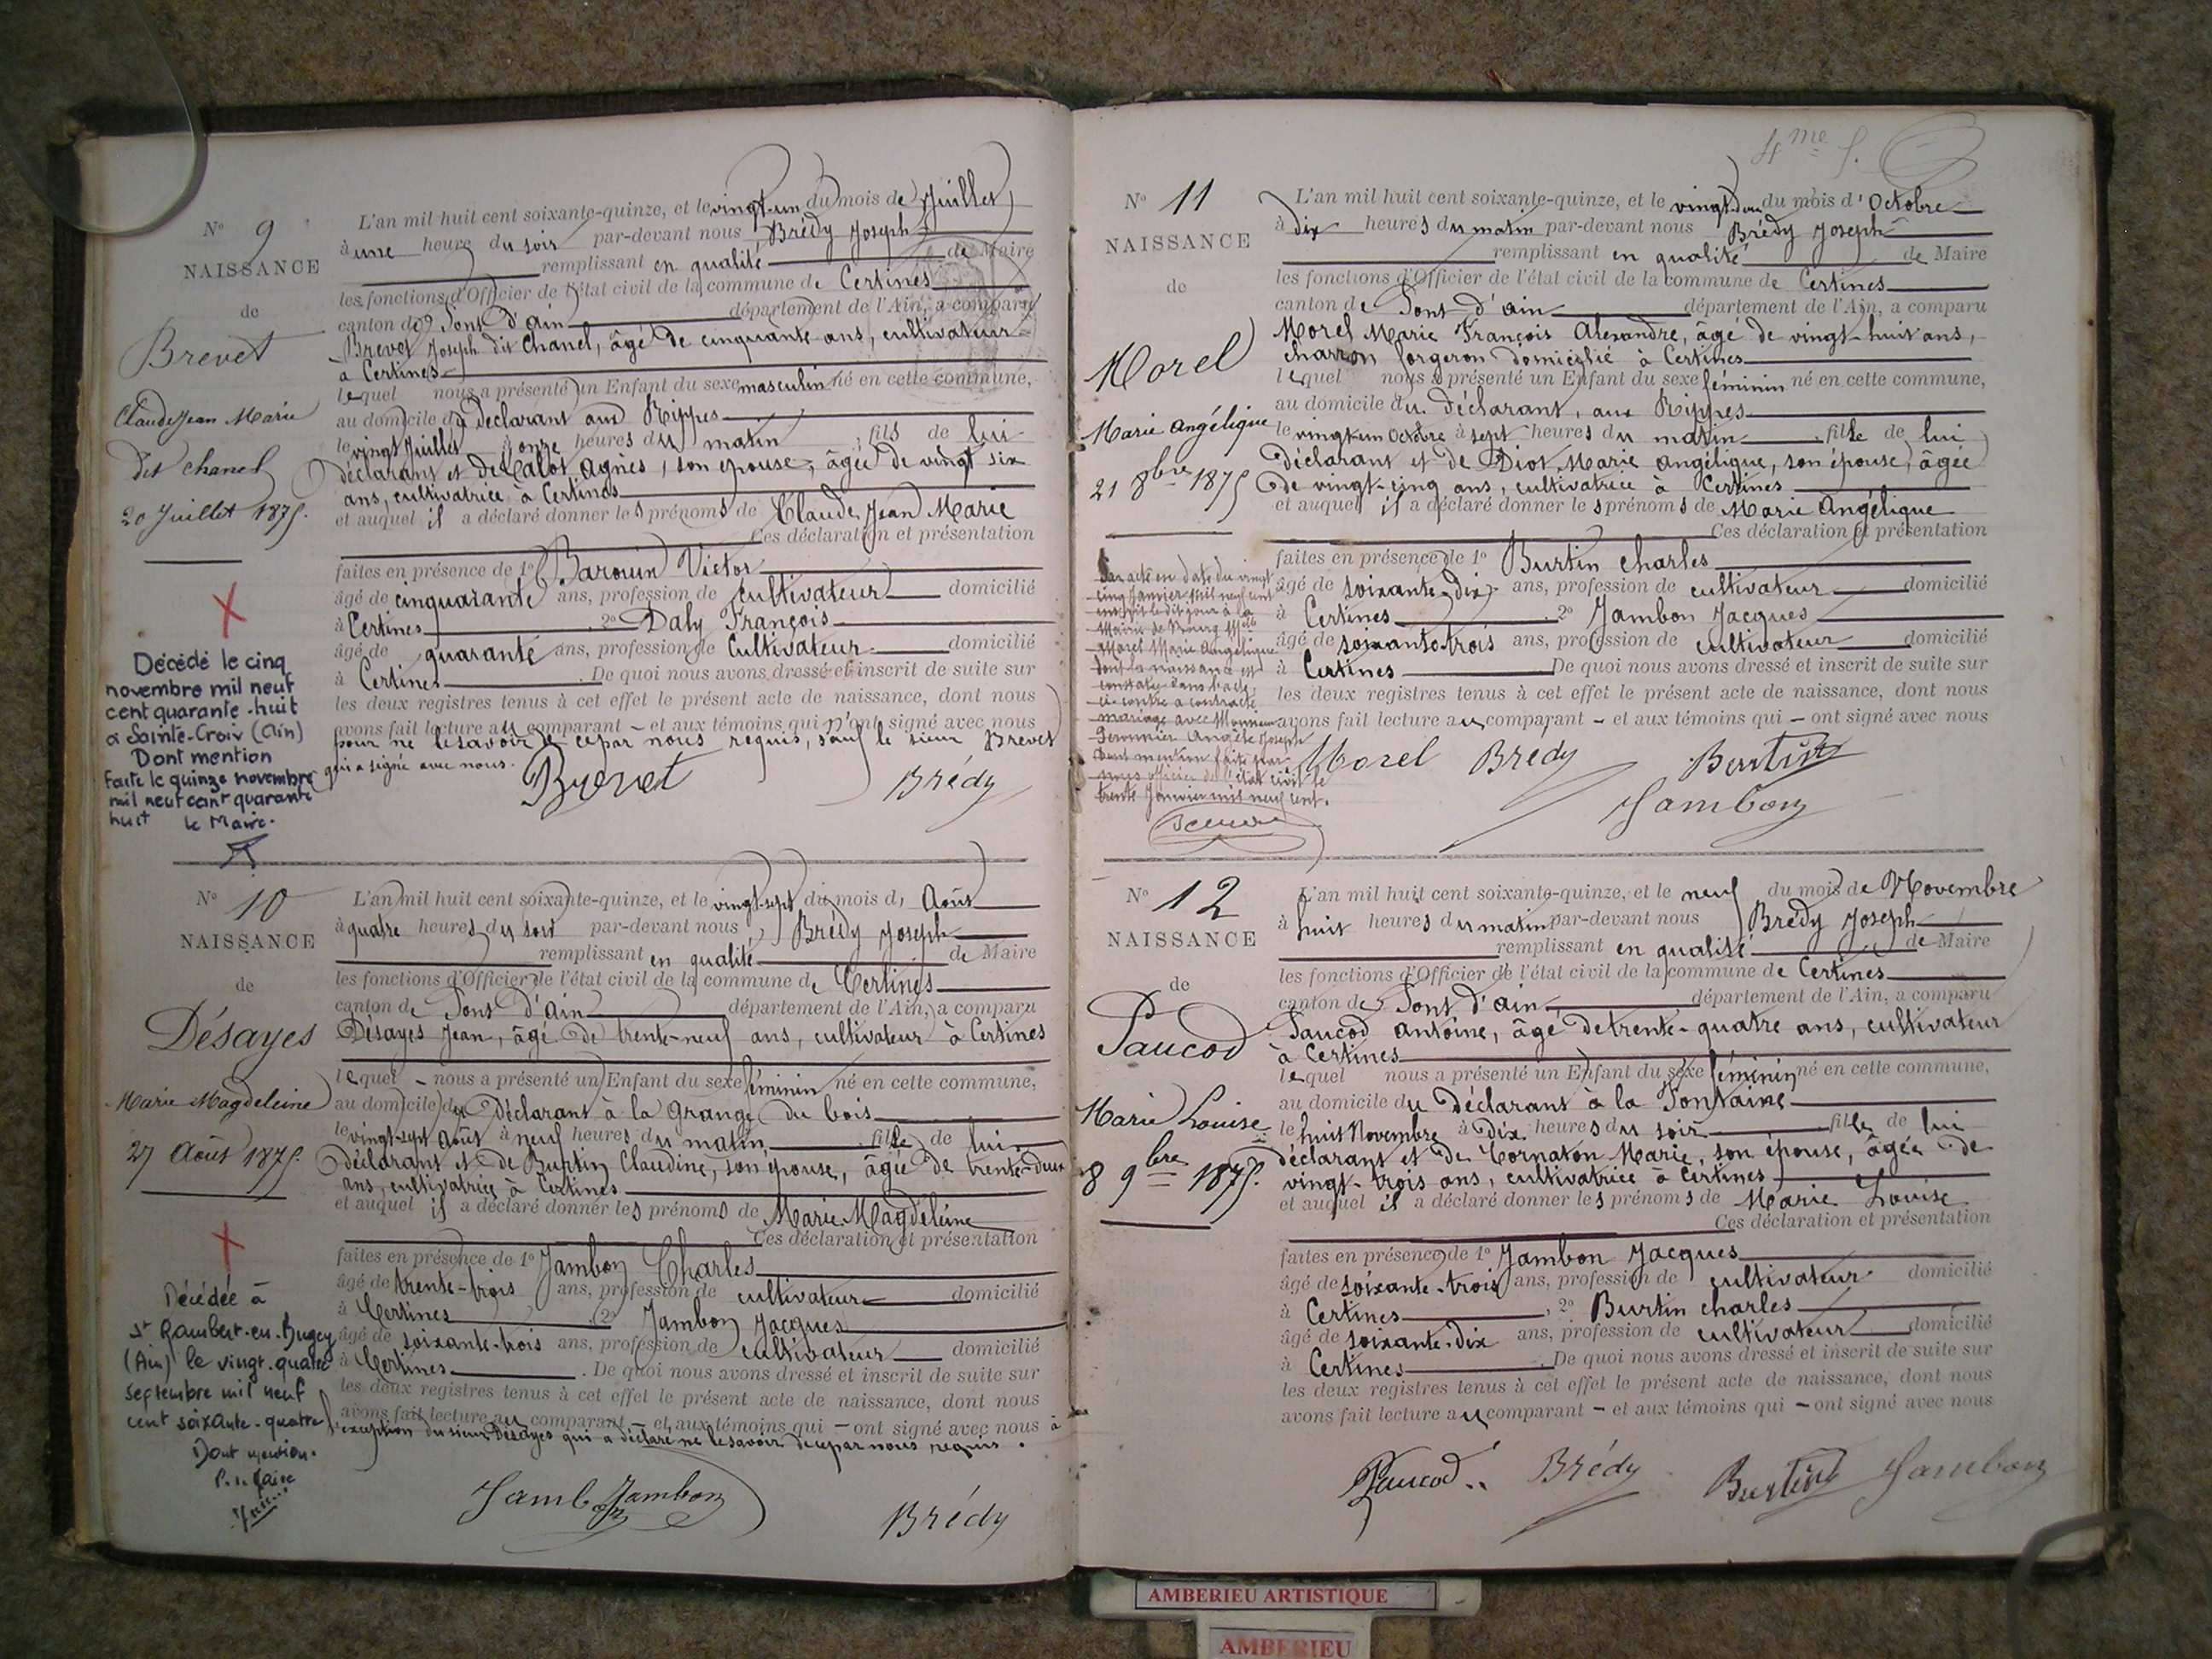 N° 9
NAISSANCE
de
Brevet
Claude Jean Marie
dit Chanel
20 Juillet 1875.
X
Décédé le cinq
novembre mil neuf
cent quarante-huit
à Sainte-Croix (Ain)
Dont mention
Faite le quinze novembre
mil neuf cent quarante
huit le Maire.
L'an mil huit cent soixante-quinze, et le vingt-un du mois de Juillet
à une heure du soir par-devant nous Brédy Joseph
remplissant en qualité de Maire
les fonctions d'Officier de l'état civil de la commune de Certines
canton de Pont d'ain département de l'Ain, a comparu
Brevet Joseph dit Chanel, âgé de cinquante ans, cultivateur
à Certines
lequel nous a présenté un Enfant du sexe masculin né en cette commune,
au domicile du déclarant aux Rippes
le vingt Juillet à onze heures du matin, fils de lui
déclarant et de Calot Agnès, son épouse, âgée de vingt six
ans, cultivatrice à Certines
et auquel il a déclaré donner les prénoms de Claude Jean Marie
Ces déclaration et présentation
faites en présence de 1° Barouin Victor
âgé de cinquarante ans, profession de cultivateur domicilié
à Certines, 2° Daly François
âgé de quarante ans, profession de Cultivateur domicilié
à Certines. De quoi nous avons dressé et inscrit de suite sur
les deux registres tenus à cet effet le présent acte de naissance, dont nous
avons fait lecture au comparant - et aux témoins qui n'ont signé avec nous
pour ne le savoir de ce par nous requis, sauf le sieur Brevet
qui a signé avec nous.
Brevet Brédy
N° 10
NAISSANCE
de
Désayes
Marie Magdeleine
27 Août 1875.
X
Décédée à
St Rambert-en-Bugey
(Ain) le vingt-quatre
septembre mil neuf
cent soixante-quatre
Dont mention.
L'an mil huit cent soixante-quinze, et le vingt-sept du mois d' Août
à quatre heures du soir par-devant nous Brédy Joseph
remplissant en qualité de Maire
les fonctions d'Officier de l'état civil de la commune de Certines
canton de Pont d'Ain département de l'Ain, a comparu
Désayes Jean, âgé de trente-neuf ans, cultivateur à Certines
lequel - nous a présenté un Enfant du sexe féminin né en cette commune,
au domicile du Déclarant à la Grange du bois
le vingt-sept août à neuf heures du matin, fille de lui
déclarant et de Burtin Claudine, son épouse, âgée de trente-deux
ans, cultivatrice à Certines
et auquel il a déclaré donner les prénoms de Marie Magdeleine
Ces déclaration et présentation
faites en présence de 1° Jambon Charles
âgé de trente-trois ans, profession de cultivateur domicilié
à Certines, 2° Jambon Jacques
âgé de soixante-trois ans, profession de cultivateur domicilié
à Certines. De quoi nous avons dressé et inscrit de suite sur
les deux registres tenus à cet effet le présent acte de naissance, dont nous
avons fait lecture au comparant - et aux témoins qui - ont signé avec nous à
l'exception du sieur Désayes qui a déclaré ne le savoir de ce par nous requis.
Jambon Jambon Brédy
4me f.
N° 11
NAISSANCE
de
Morel
Marie Angélique
21 8bre 1875
Par acte en date du vingt
cinq Janvier mil neuf cent
inscrit le dit jour à la
Mairie de Bourg Melle
Morel Marie Angélique
dont la naissance est
constatée dans l'acte
ci-contre a contracté
mariage avec Monsieur
Angèle Joseph
Dont mention faite par
nous officier de l'état civil le
trente Janvier mil neuf cent.
L'an mil huit cent soixante-quinze, et le vingt-deux du mois d'Octobre
à dix heures du matin par-devant nous Brédy Joseph
remplissant en qualité de Maire
les fonctions d'Officier de l'état civil de la commune de Certines
canton de Pont d'ain département de l'Ain, a comparu
Morel Marie François Alexandre, âgé de vingt-huit ans,
charron forgeron domicilié à Certines
lequel nous a présenté un Enfant du sexe féminin né en cette commune,
au domicile du déclarant, aux Rippes
le vingt-un Octobre à sept heures du matin, fille de lui
déclarant et de Diot Marie Angélique, son épouse, âgée
de vingt-cinq ans, cultivatrice à Certines
et auquel il a déclaré donner les prénoms de Marie Angélique
Ces déclaration et présentation
faites en présence de 1° Burtin Charles
âgé de soixante-dix ans, profession de cultivateur domicilié
à Certines, 2° Jambon Jacques
âgé de soixante-trois ans, profession de cultivateur domicilié
à Certines De quoi nous avons dressé et inscrit de suite sur
les deux registres tenus à cet effet le présent acte de naissance, dont nous
avons fait lecture au comparant - et aux témoins qui - ont signé avec nous
Morel Brédy Burtin
Jambon
N° 12
NAISSANCE
de
Paucod
Marie Louise
8 9bre 1875.
L'an mil huit cent soixante-quinze, et le neuf du mois de Novembre
à huit heures du matin par-devant nous Brédy Joseph
remplissant en qualité de Maire
les fonctions d'Officier de l'état civil de la commune de Certines
canton de Pont d'ain département de l'Ain, a comparu
Paucod Antoine, âgé de trente-quatre ans, cultivateur
à Certines
lequel nous a présenté un Enfant du sexe féminin né en cette commune,
au domicile du Déclarant à la Fontaine
le huit Novembre à Dix heures du soir fille de lui
déclarant et de Cornaton Marie, son épouse, âgée de
vingt-trois ans, cultivatrice à Certines
et auquel il a déclaré donner les prénoms de Marie Louise
Ces déclaration et présentation
faites en présence de 1° Jambon Jacques
âgé de soixante-trois ans, profession de cultivateur domicilié
à Certines, 2° Burtin Charles
âgé de soixante-dix ans, profession de cultivateur domicilié
à Certines De quoi nous avons dressé et inscrit de suite sur
les deux registres tenus à cet effet le présent acte de naissance, dont nous
avons fait lecture au comparant - et aux témoins qui - ont signé avec nous
Paucod Brédy Burtin Jambon
AMBERIEU ARTISTIQUE
AMBERIEU